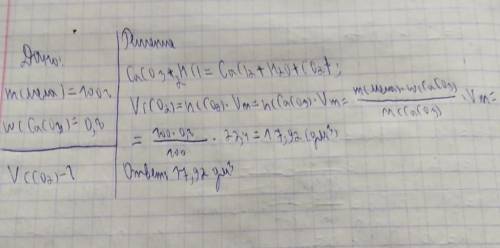 Дано:
m(мела)=100г
w(CaCO3)=0,8
V(CO2)-?
Решение
CaCO3+2HCl=CaCl2+H2O+CO2↑;
V(CO2)=n(CO2)·Vm=n(CaCO3)·Vm=m(мела)·w(CaCO3)/M(CaCO3)·Vm=
=100·0,8/100·22,4=17,92(дм³)
Ответ: 17,92 дм³